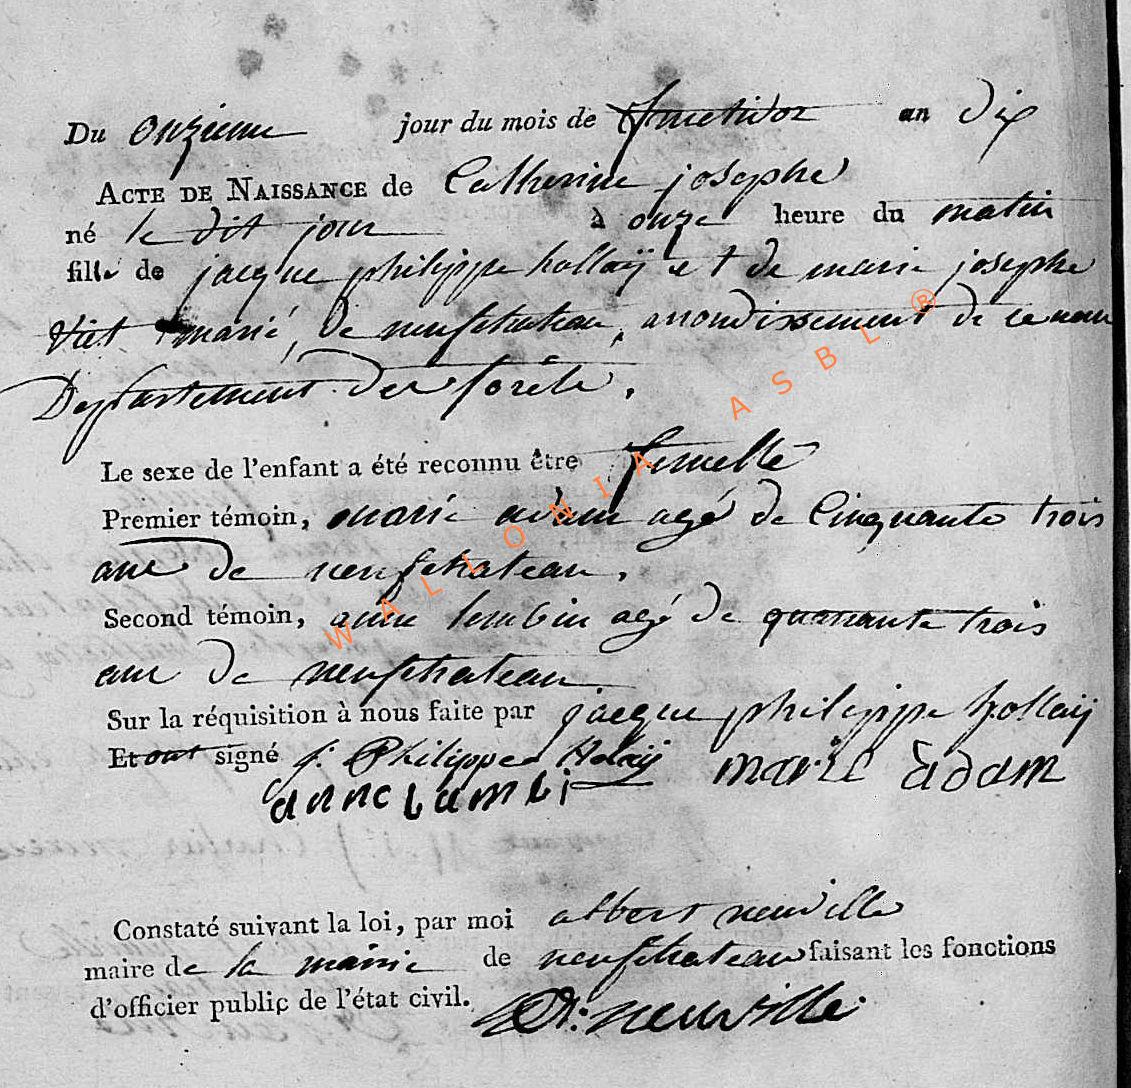 Du onzieme jour du mois de fructidor an dix
ACTE DE NAISSANCE de Catherine josephe
né le dit jour à onze heure du matin
fille de jacque philippe hollaÿ et de marie josephe
marié, de neufchateau, arrondissement de ce nom
Departement des forêts.
Le sexe de l'enfant a été reconnu être femelle
Premier témoin, marie adam agé de Cinquante trois
ans de neufchateau.
Second témoin, anne lembin agé de quarante trois
ans de neufchateau.
Sur la réquisition à nous faite par jacque philippe hollaÿ
Et ont signé j. Philippe Holaÿ marie adam
anne lambi
Constaté suivant la loi, par moi albert neuville
maire de la mairie de neufchateau faisant les fonctions
d'officier public de l'état civil. neuville
WALLONIA ASBL ®